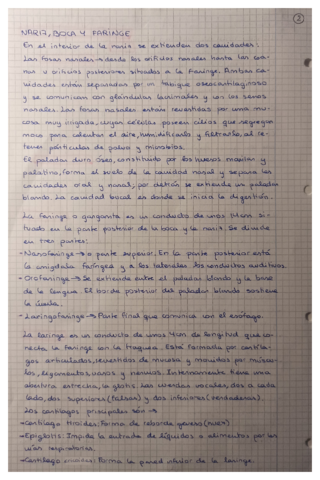 2
NARIZ, BOCA Y FARINGE
En el interior de la nariz se extienden dos cavidades:
Las fosas nasales → desde los orificios nasales hasta las coa-
nas u orificios posteriores situados a la faringe. Ambas ca-
vidades están separadas por un tabique osteocartilaginoso
y se comunican con glándulas lacrimales y con los senos
nasales. Las fosas nasales están revestidas por una mu-
cosa muy irrigada, cuyas células poseen cilios que segregan
moco para calentar el aire, humidificarlo y filtrarlo, al re-
tener partículas de polvo y microbios.
El paladar duro, óseo, constituido por los huesos maxilar y
palatino, forma el suelo de la cavidad nasal y separa las
cavidades oral y nasal; por detrás se extiende un paladar
blando. La cavidad bucal es donde se inicia la digestión.
La faringe o garganta es un conducto de unos 14cm, si-
tuado en la parte posterior de la boca y la nariz. Se divide
en tres partes:
- Nasofaringe → o parte superior. En la parte posterior está
la amígdala faríngea y a los laterales los conductos auditivos.
- Orofaringe → Se extiende entre el paladar blando y la base
de la lengua. El borde posterior del paladar blando sostiene
la úvula.
- Laringofaringe → Parte final que comunica con el esófago.
La laringe es un conducto de unos 4cm de longitud que co-
necta la faringe con la tráquea. Está formada por cartíla-
gos articulados, revestidos de mucosa y movidos por múscu-
los, ligamentos, vasos y nervios. Internamente tiene una
abertura estrecha, la glotis. Las cuerdas vocales, dos a cada
lado, dos superiores (falsas) y dos inferiores (verdaderas).
Los cartílagos principales son →
- Cartílago tiroides: Forma de reborde grueso (nuez)
- Epiglotis: Impide la entrada de líquidos o alimentos por las
vías respiratorias.
- Cartílago: Forma la pared inferior de la laringe.